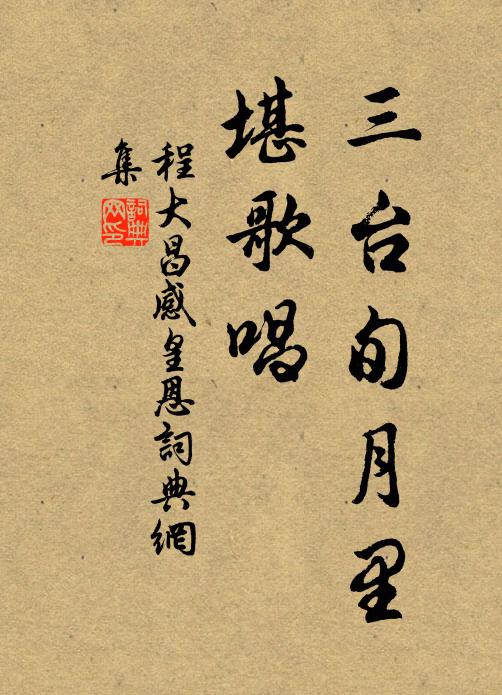 三台旬月里
堪歌唱
程大昌感皇恩詞典網
集
詞典
网印